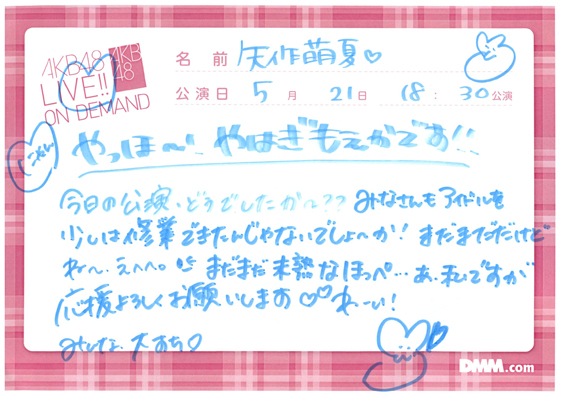 AKB48
LIVE!!
ON DEMAND
AKB
48
名前 矢作萌夏♡
公演日 5月 21日 18:30公演
やっほ〜! やはぎもえかです!!
今日の公演、どうでしたか〜?? みなさんもアイドルを
少しは修業できたんじゃないでしょ〜か! まだまだだけど
ね〜、えへへ。まだまだ未熟なほっぺ…あ、私ですが
応援よろしくお願いします♡♡ わーい!
みんな、大すき♡
DMM.com